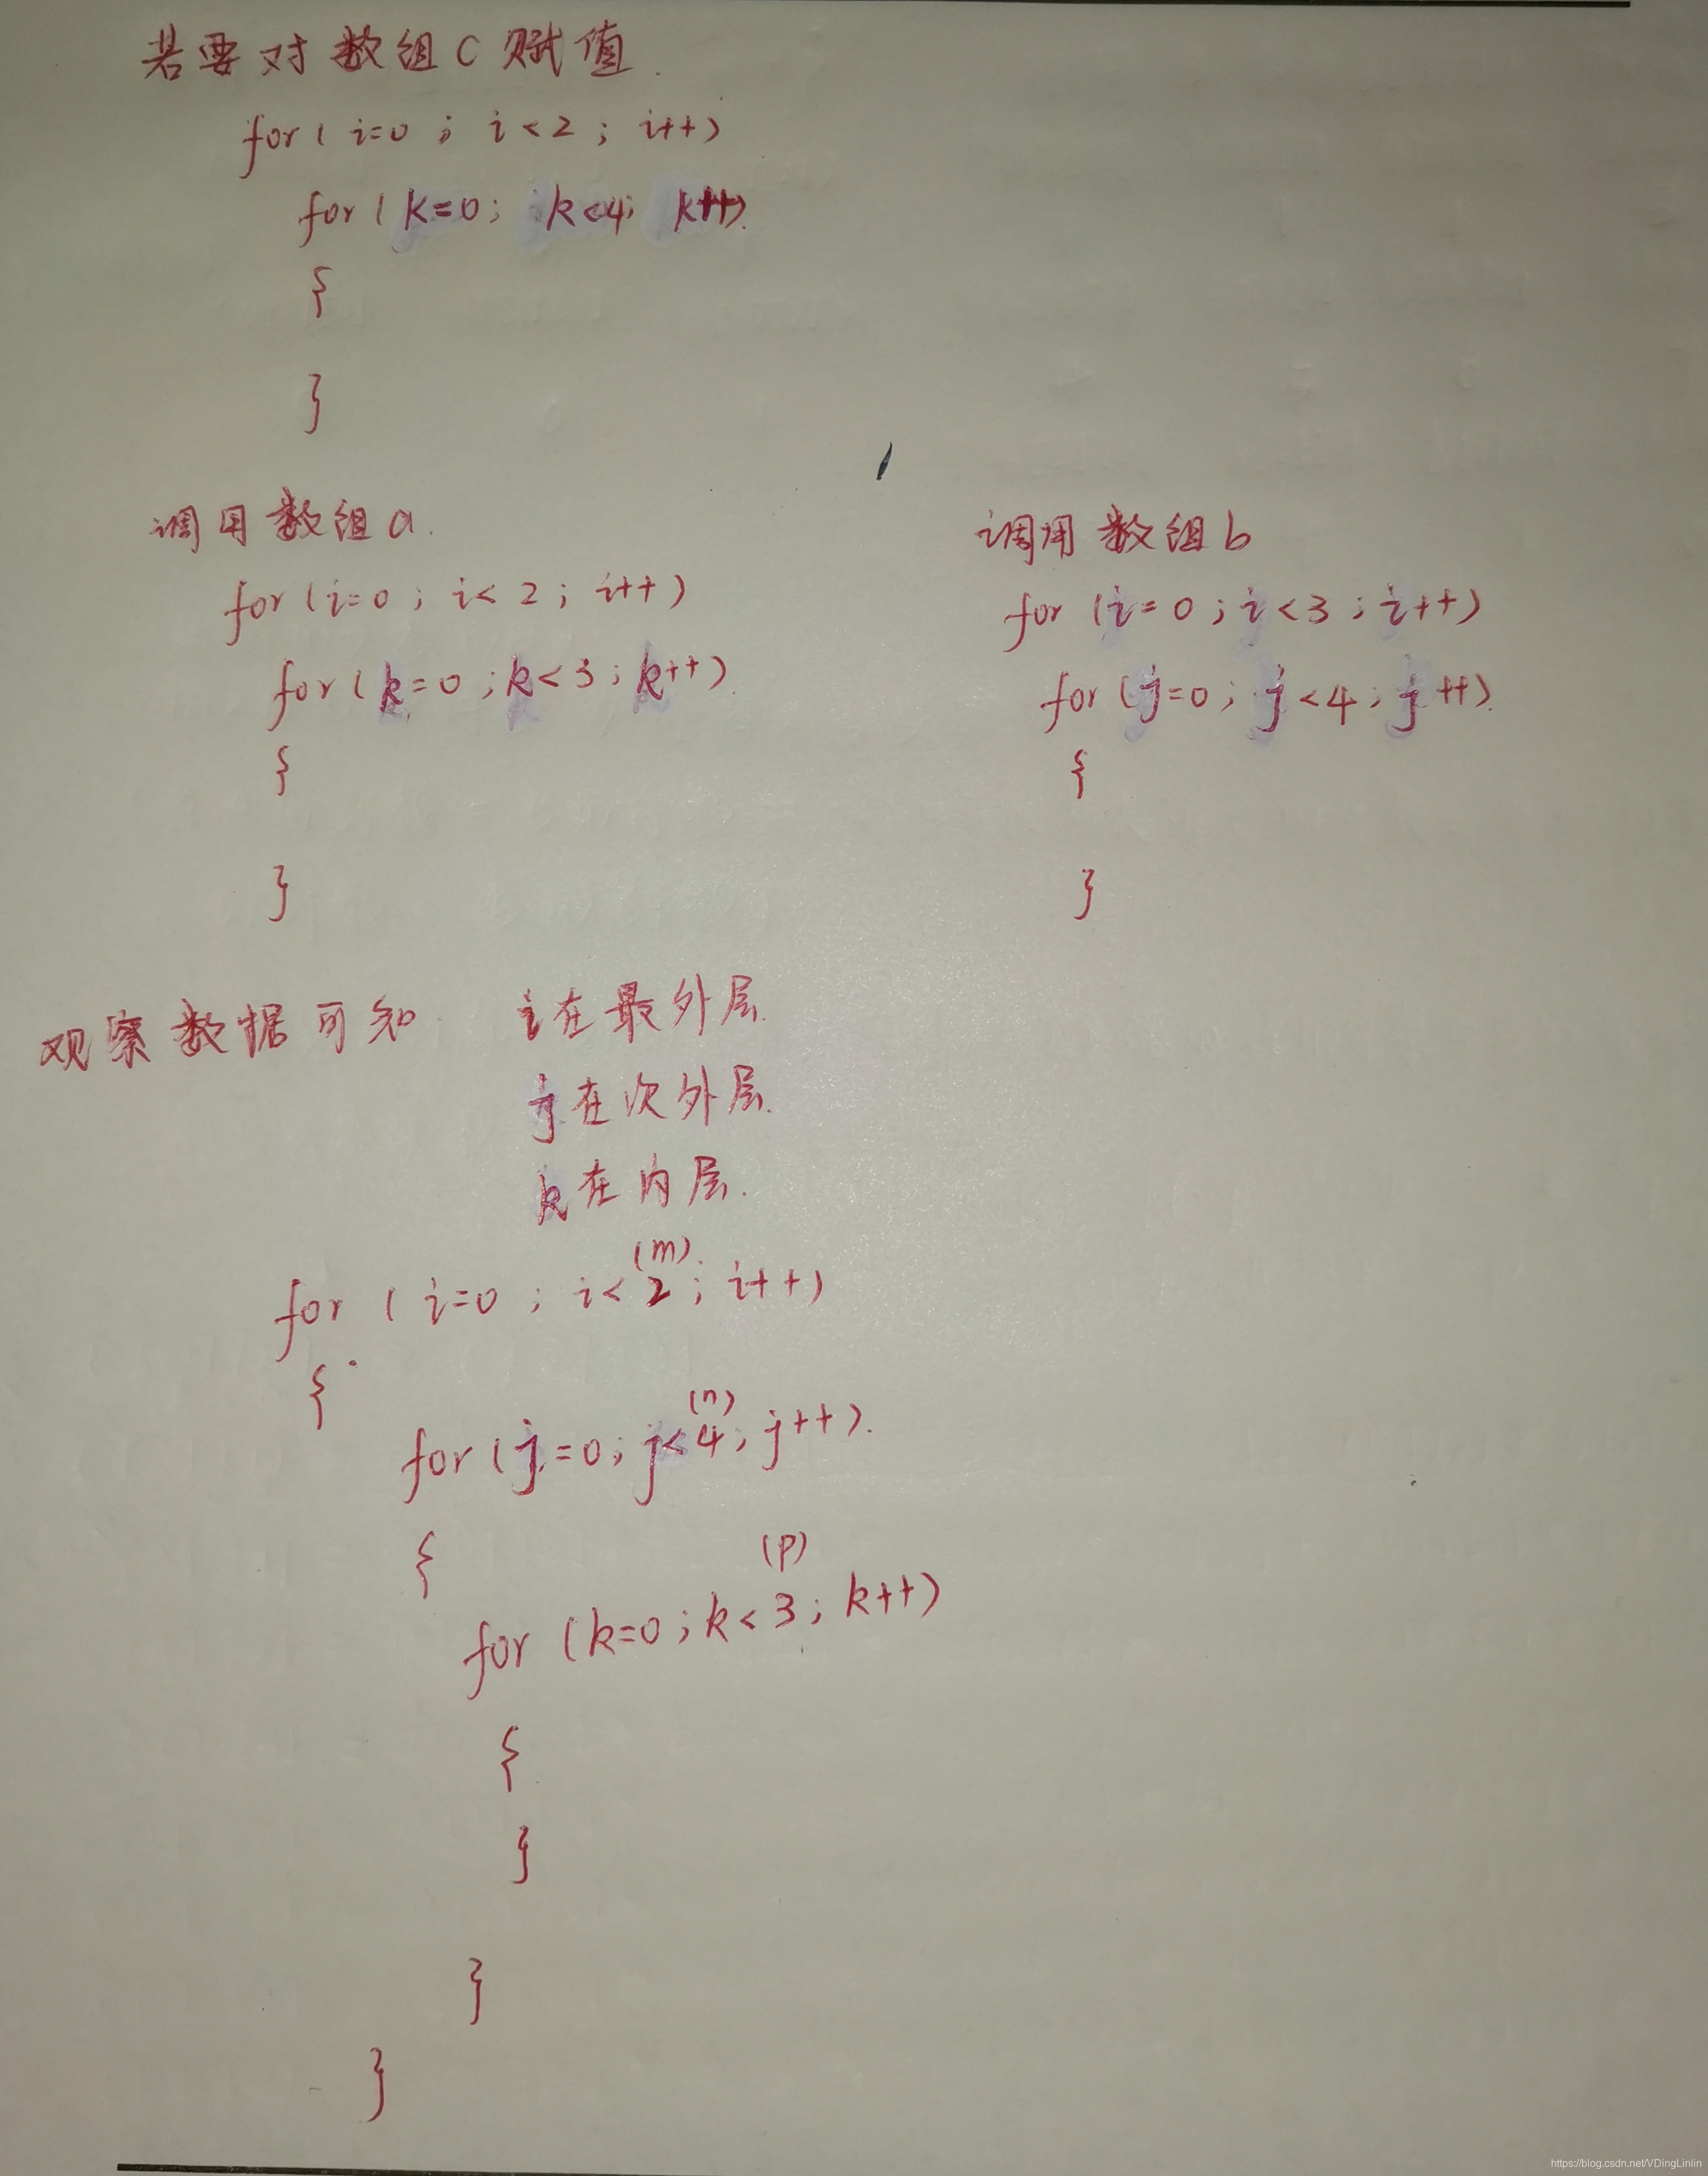 若要对数组C赋值.
for ( i=0 ; i<2 ; i++)
for ( k=0; k<4; k++).
{
}
调用数组a.
for (i=0 ; i<2 ; i++)
for (k=0 ;k<3; k++).
{
}
调用数组b
for (i=0 ;i<3 ;i++)
for (j=0; j<4; j++).
{
}
观察数据可知 i在最外层.
j在次外层.
k在内层.
(m)
for ( i=0 ; i<2; i++)
{
(n)
for (j=0; j<4; j++).
{
(p)
for (k=0 ;k<3; k++)
{
}
}
}
https://blog.csdn.net/VDingLinlin